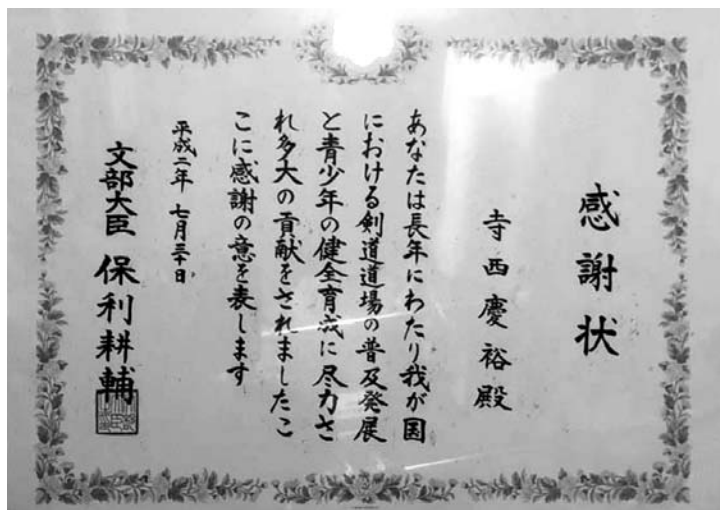 感謝状
寺西慶裕殿
あなたは長年にわたり我が国
における剣道道場の普及発展
と青少年の健全育成に尽力さ
れ多大の貢献をされましたこ
こに感謝の意を表します
平成二年七月三十日
文部大臣 保利耕輔